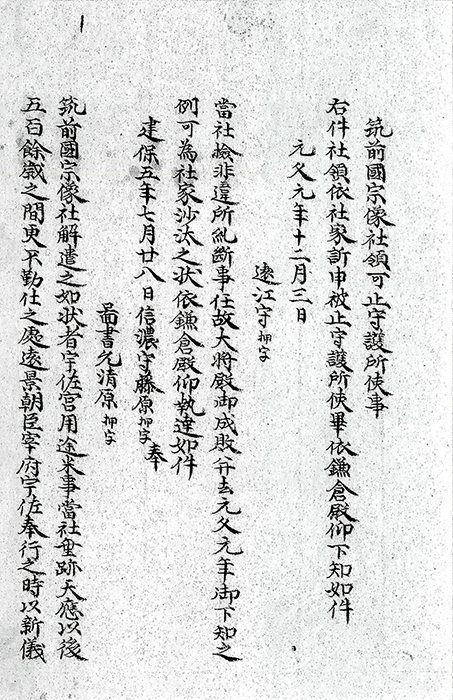 筑前國宗像社領可止守護所使事
右件社領依社家訴申被止守護所使畢依鎌倉殿仰下知如件
元久元年十二月三日
遠江守押字
當社檢非違所糺断事任故大将殿御成敗并去元久元年御下知之
例可為社家沙汰之状依鎌倉殿仰執達如件
建保五年七月廿八日信濃守藤原押字奉
啚書允清原押字
筑前國宗像社解遣之如状者宇佐宮用途米事當社垂跡天應以後
五百餘歳之間更不勤仕之處遠景朝臣宰府宇佐奉行之時以新儀